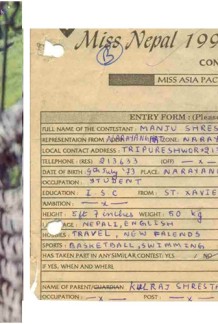 Miss Nepal 199
B
CON
MISS ASIA PAC
ENTRY FORM : (Please
FULL NAME OF THE CONTESTANT : MANJU SHRES
REPRESENTATION FROM NARAYANI ZONE: NARAY
LOCAL CONTACT ADDRESS : TRIPURESHWOR
TELEPHONE : (RES) 213633 (OFF) — x —
DATE OF BIRTH 9th July '73 PLACE: NARAYAN
OCCUPATION : STUDENT
EDUCATION : I.SC FROM : ST. XAVIE
AMBITION : — x —
HEIGHT : 5ft 7 inches WEIGHT : 50 kg
NEPALI, ENGLISH
TRAVEL, NEW
SPORTS : BASKETBALL, SWIMMING
HAS TAKEN PART IN ANY SIMILAR CONTEST: YES / NO
IF YES, WHEN AND WHERE
NAME OF PARENT/GUARDIAN KULRAJ SHRESTA
OCCUPATION : — x — POST : — x —